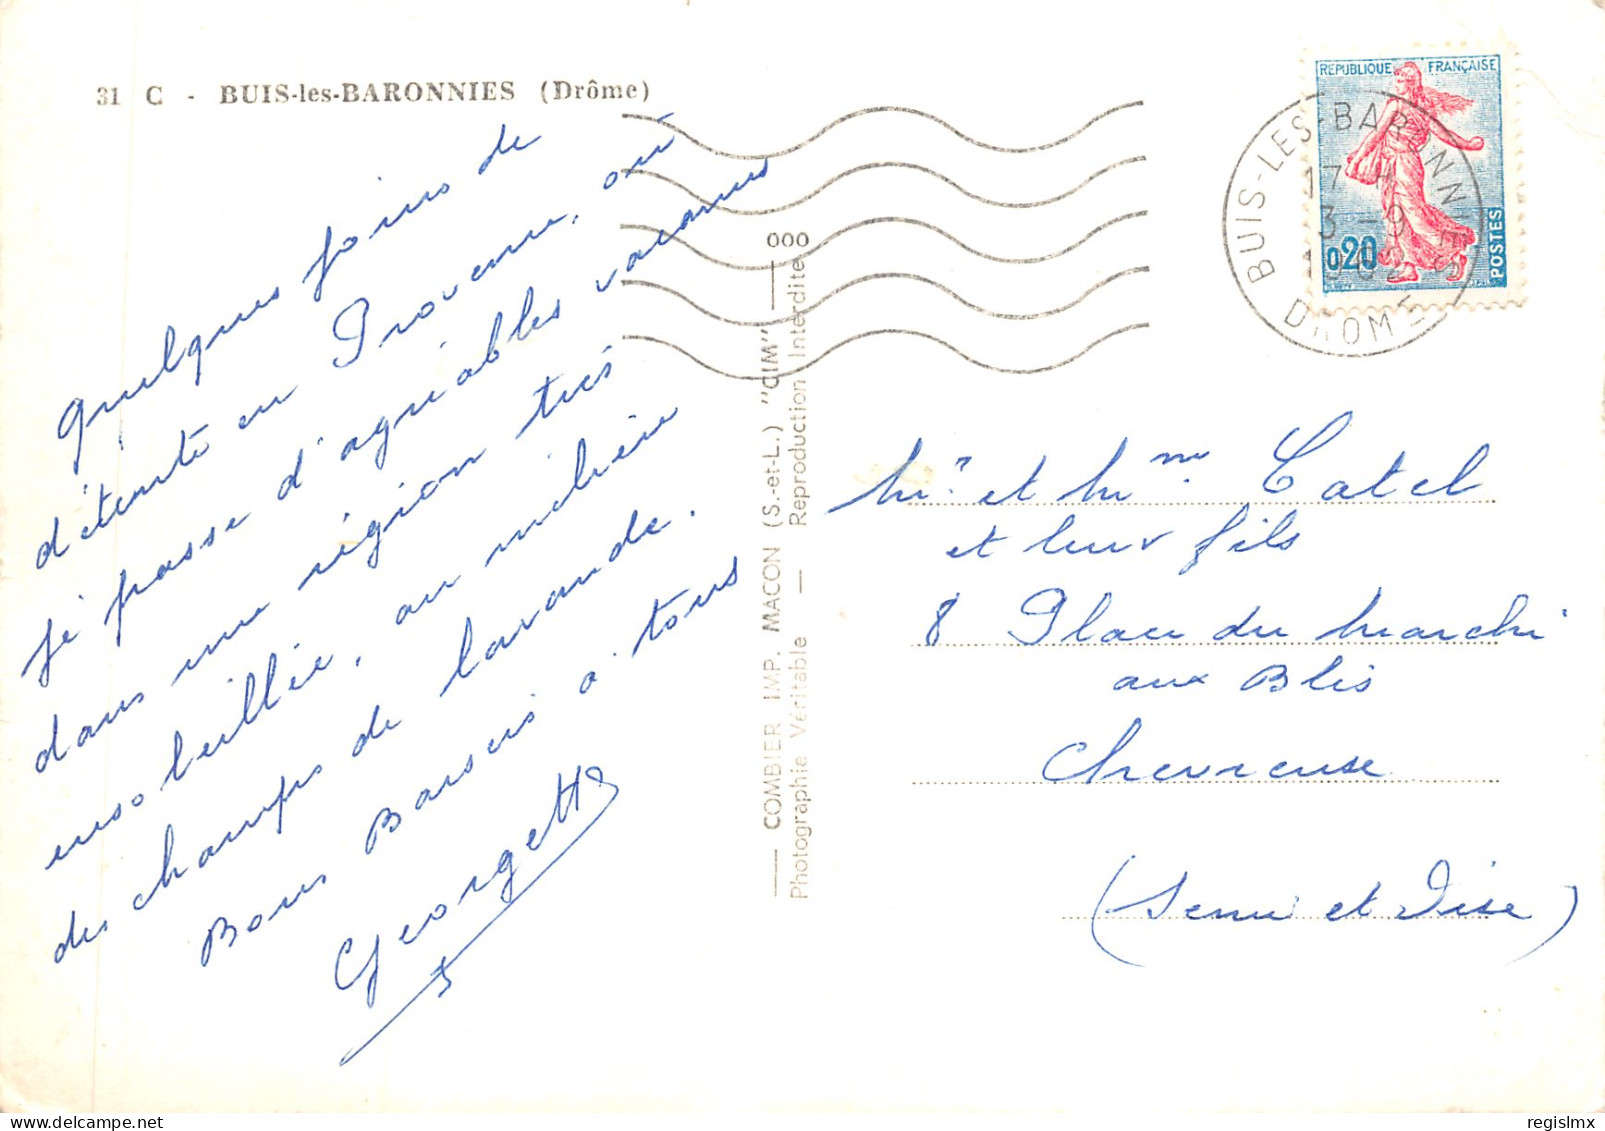 31 C - BUIS-les-BARONNIES (Drôme)
Quelques jours de
détente en Provence, où
je passe d'agréables vacances
dans une région très
ensoleillée, au milieu
des champs de lavande.
Bons Baisers à tous
Georgette
COMBIER IMP. MACON (S.-et-L.) "CIM"
Photographie Véritable — Reproduction Interdite
000
REPUBLIQUE FRANÇAISE
0,20
POSTES
BUIS-LES-BARONNIES
17 H
3 - 9
DROME
Mr et Mme Catel
et leur fils
8 Place du Marché
aux Blés
Chevreuse
(Seine et Oise)
regislmx